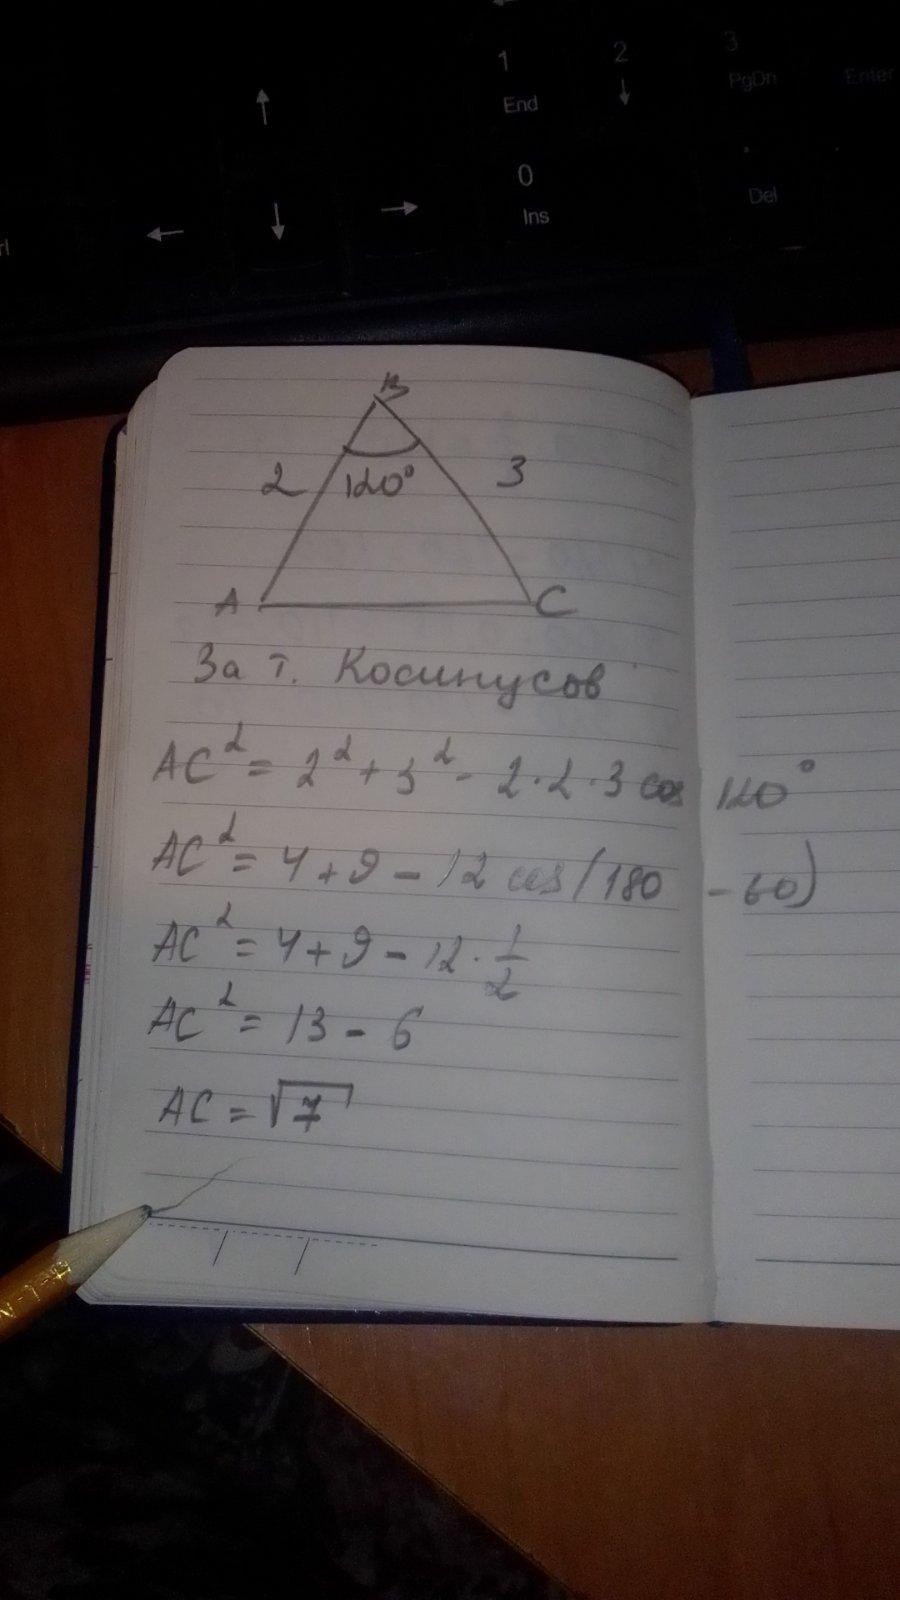 1
2
3
End
PgDn
Enter
0
Ins
Del
B
2
120°
3
A
C
За т. Косинусов
AC² = 2² + 3² - 2·2·3 cos 120°
AC² = 4 + 9 - 12 cos(180 - 60)
AC² = 4 + 9 - 12 · 1/2
AC² = 13 - 6
AC = √7